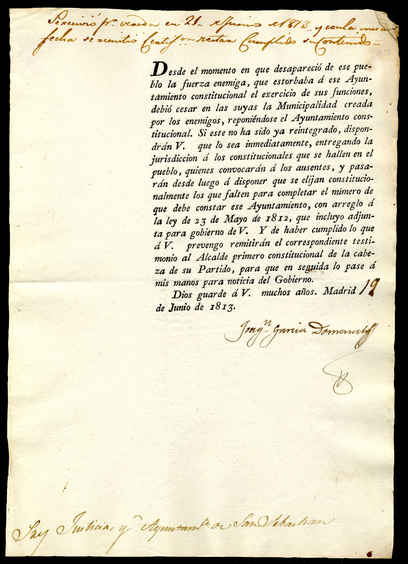 Se recivió pr. vereda en 21. de Junio de 1813. y con la misma
fecha se remitió Certifon. de estar Cumplido su Contenido.
Desde el momento en que desapareció de ese pue-
blo la fuerza enemiga, que estorbaba á ese Ayun-
tamiento constitucional el exercicio de sus funciones,
debió cesar en las suyas la Municipalidad creada
por los enemigos, reponiéndose el Ayuntamiento cons-
titucional. Si este no ha sido ya reintegrado, dispon-
drán V. que lo sea inmediatamente, entregando la
jurisdiccion á los constitucionales que se hallen en el
pueblo, quienes convocarán á los ausentes, y pasa-
rán desde luego á disponer que se elijan constitucio-
nalmente los que falten para completar el número de
que debe constar ese Ayuntamiento, con arreglo á
la ley de 23 de Mayo de 1812, que incluyo adjun-
ta para gobierno de V. Y de haber cumplido lo que
á V. prevengo remitirán el correspondiente testi-
monio al Alcalde primero constitucional de la cabe-
za de su Partido, para que en seguida lo pase á
mis manos para noticia del Gobierno.
Dios guarde á V. muchos años. Madrid 19
de Junio de 1813.
Joaqn. Garcia Domenech
Sres Justicia, y Ayuntamto. de San Sebastian